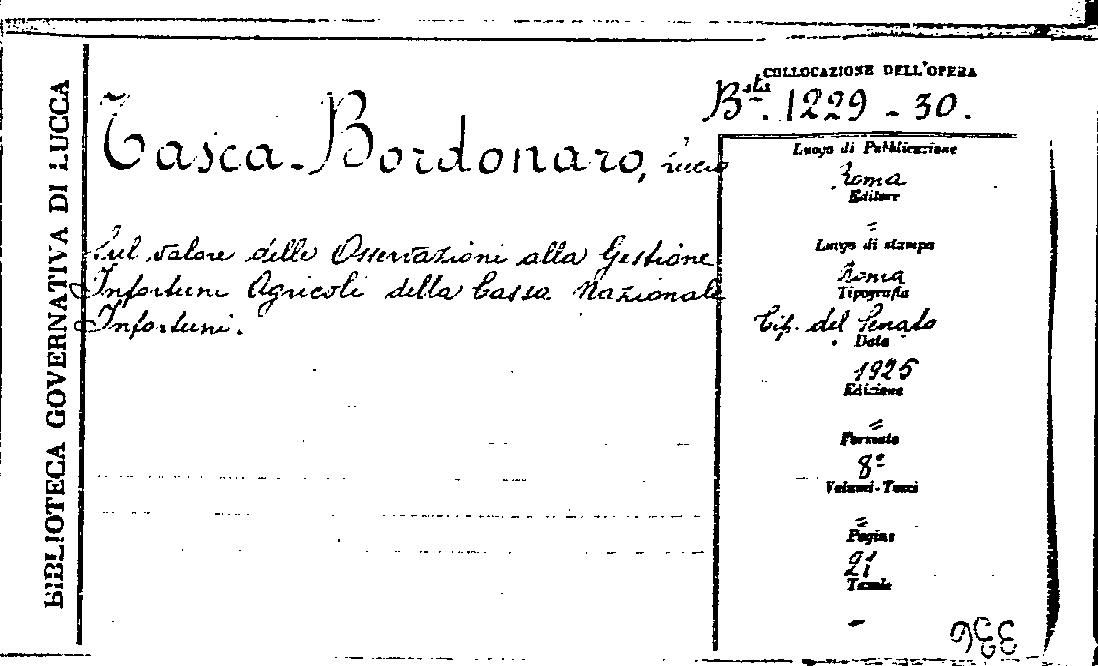 BIBLIOTECA GOVERNATIVA DI LUCCA
COLLOCAZIONE DELL'OPERA
Bsta. 1229 - 30.
Tasca-Bordonaro, Lucio
Sul valore delle Osservazioni alla Gestione
Infortuni Agricoli della Cassa Nazionale
Infortuni.
Luogo di Pubblicazione
Roma
Editore
=
Luogo di stampa
Roma
Tipografia
Tip. del Senato
Data
1925
Edizione
=
Formato
8º
Volumi-Tomi
=
Pagine
21
Tavole
-
336